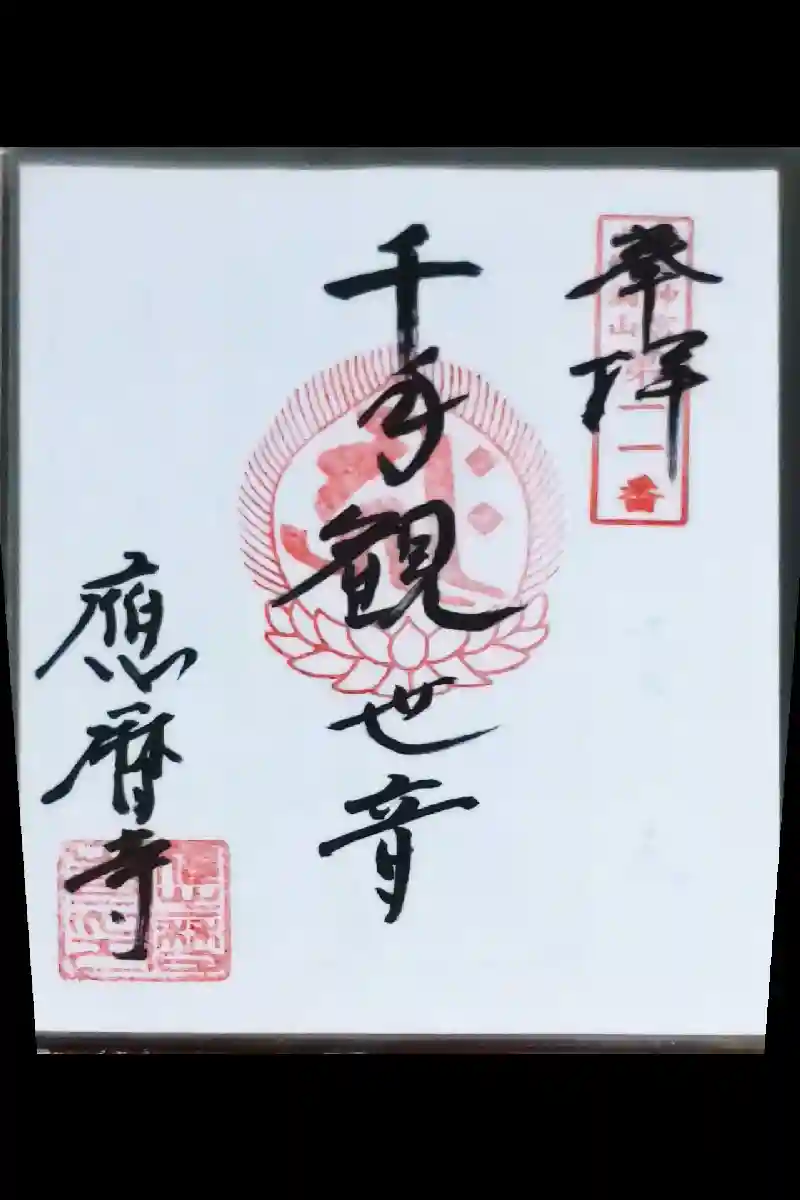 奉拝
二番
千手観世音
應暦寺